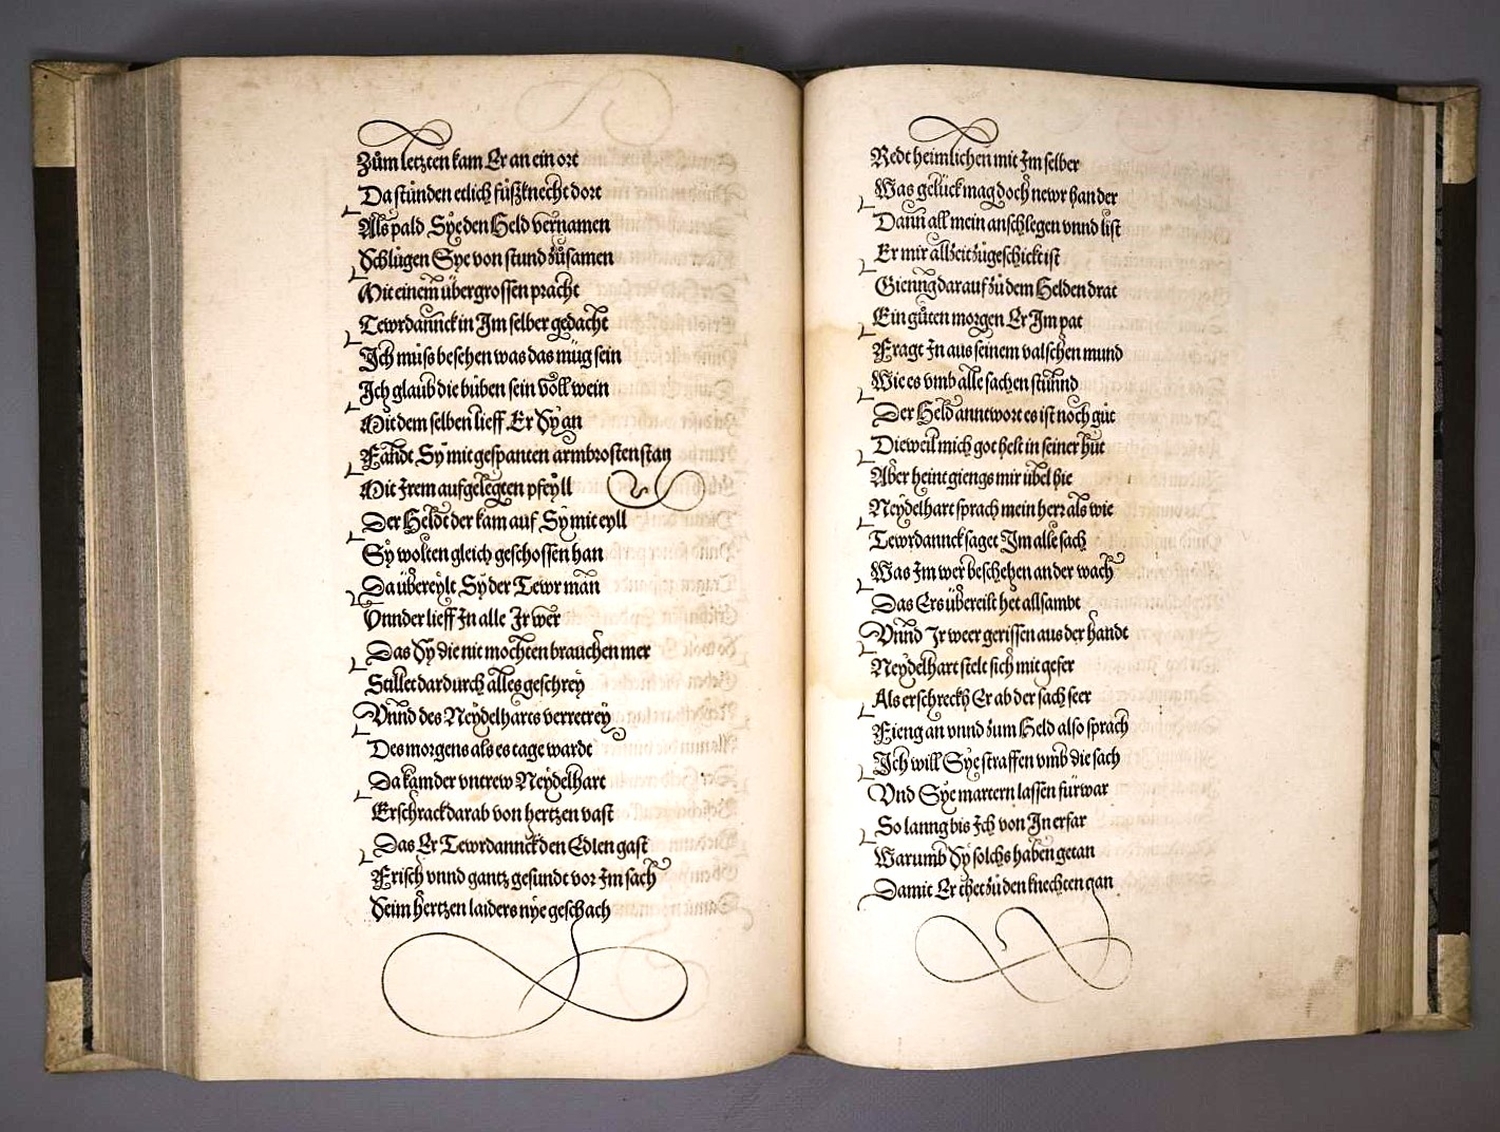 Zům letzten kam Er an ein ort
Da stůnden etlich fůßknecht dort
Als pald Sye den Held vernamen
Schlůgen Sye von stund zůsamen
Mit einem übergrossen pracht
Tewrdannck in Im selber gedacht
Ich můss besehen was das můg sein
Ich glaub die bůben sein voll wein
Mit dem selben lieff Er Sy an
Fandt Sy mit gespanten armbrosten stan
Mit Irem aufgelegten pfeyll
Der Heldt der kam auf Sy mit eyll
Sy wolten gleich geschossen han
Da übereylt Sy der Tewr man
Vnnder lieff In alle Ir wer
Das Sy die nit mochten brauchen mer
Stillet dardurch alles geschrey
Vnnd des Neydelharts verretrey
Des morgens als es tage wardt
Da kam der vntrew Neydelhart
Erschrack darab von hertzen vast
Das Er Tewrdannck den Edlen gast
Frisch vnnd gantz gesundt vor Im sach
Seim hertzen laiders nye geschach
Redt heimlichen mit Im selber
Was gelück mag doch newr han der
Dann all mein anschlegen vnnd list
Er mir allzeit zůgeschickt ist
Gienng darauf zů dem Helden drat
Ein gůten morgen Er Im pat
Fragt In aus seinem valschen mund
Wie es vmb alle sachen stůnnd
Der Held anntwort es ist noch gůt
Dieweil mich got helt in seiner hůt
Aber heint giengs mir übel hie
Neydelhart sprach mein herr als wie
Tewrdannck saget Im alle sach
Was Im wer beschehen an der wach
Das Ers übereilt het allsambt
Vnnd Ir weer gerissen aus der handt
Neydelhart stelt sich mit gefer
Als erschreckh Er ab der sach seer
Fieng an vnnd zum Held also sprach
Ich will Sye straffen vmb die sach
Vnd Sye martern lassen fürwar
So lanng bis Ich von In erfar
Warumb Sy solchs haben getan
Damit Er thet zů den knechten gan